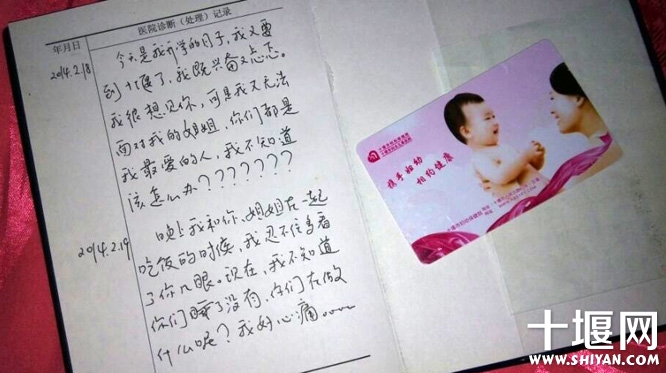 医院诊断（处理）记录
年月日
2014.2.18
今天是我开学的日子，我又要
到十堰了，我既兴奋又忐忑。
我很想见你，可是我又无法
面对我的姐姐，你们都是
我最爱的人，我不知道
该怎么办？？？？？？？
2014.2.19
晚上我和你、姐姐在一起
吃饭的时候，我忍不住多看
了你几眼。现在，我不知道
你们睡了没有，你们在做
什么呢？我好心痛……
携手妇幼
相约健康
十堰网
WWW.SHIYAN.COM